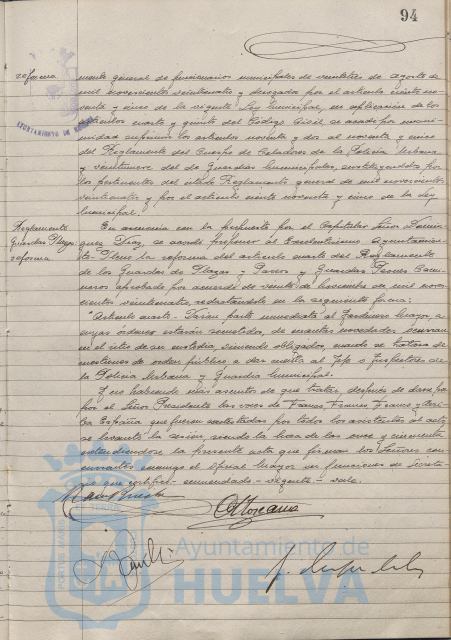 94
reforma
mento general de funcionarios municipales de veintitres de agosto de
mil novecientos veinticuatro y derogado por el articulo ciento no-
venta y cinco de la vigente Ley Municipal, en aplicación de los
articulos cuarto y quinto del Código Civil se acuerda por unani-
midad suprimir los articulos noventa y dos al noventa y cinco
del Reglamento del Cuerpo de Celadores de la Policia Urbana
y veintinueve del de Guardias Municipales, sustituyendolos por
los pertinentes del citado Reglamento general de mil novecientos
veinticuatro y por el articulo ciento noventa y cinco de la Ley
Municipal.
AYUNTAMIENTO DE
Reglamento
Guardas Plazas
reforma
En armonia con lo propuesto por el Capitular Señor Domin-
guez Diaz, se acordó proponer al Excelentisimo Ayuntamien-
to Pleno la reforma del articulo cuarto del Reglamento
de los Guardas de Plazas y Paseos y Guardas Peones Cami-
neros aprobado por acuerdo de veinte de de mil nove-
cientos veinticuatro, redactandolo en la siguiente forma:
"Articulo cuarto - Darán parte inmediata al Jardinero Mayor, a
cuyas órdenes estarán sometidos, de cuantas novedades ocurran
en el sitio de su custodia, viniendo obligados, cuando se tratara de
cuestiones de orden público a dar cuenta al Jefe o Inspectores de
la Policia Urbana y Guardia Municipal.
Y no habiendo más asuntos de que tratar, después de darse
por el Señor Presidente las voces de Franco, Franco, Franco y Arri-
ba España que fueron contestadas por todos los asistentes al acto,
se levantó la sesion, siendo la hora de las once y cincuenta
extendiendose la presente acta que firman los Señores con-
currentes conmigo el Oficial Mayor en funciones de Secreta-
rio que certifico - enmendado - vigente - vale.
Ayuntamiento de
HUELVA